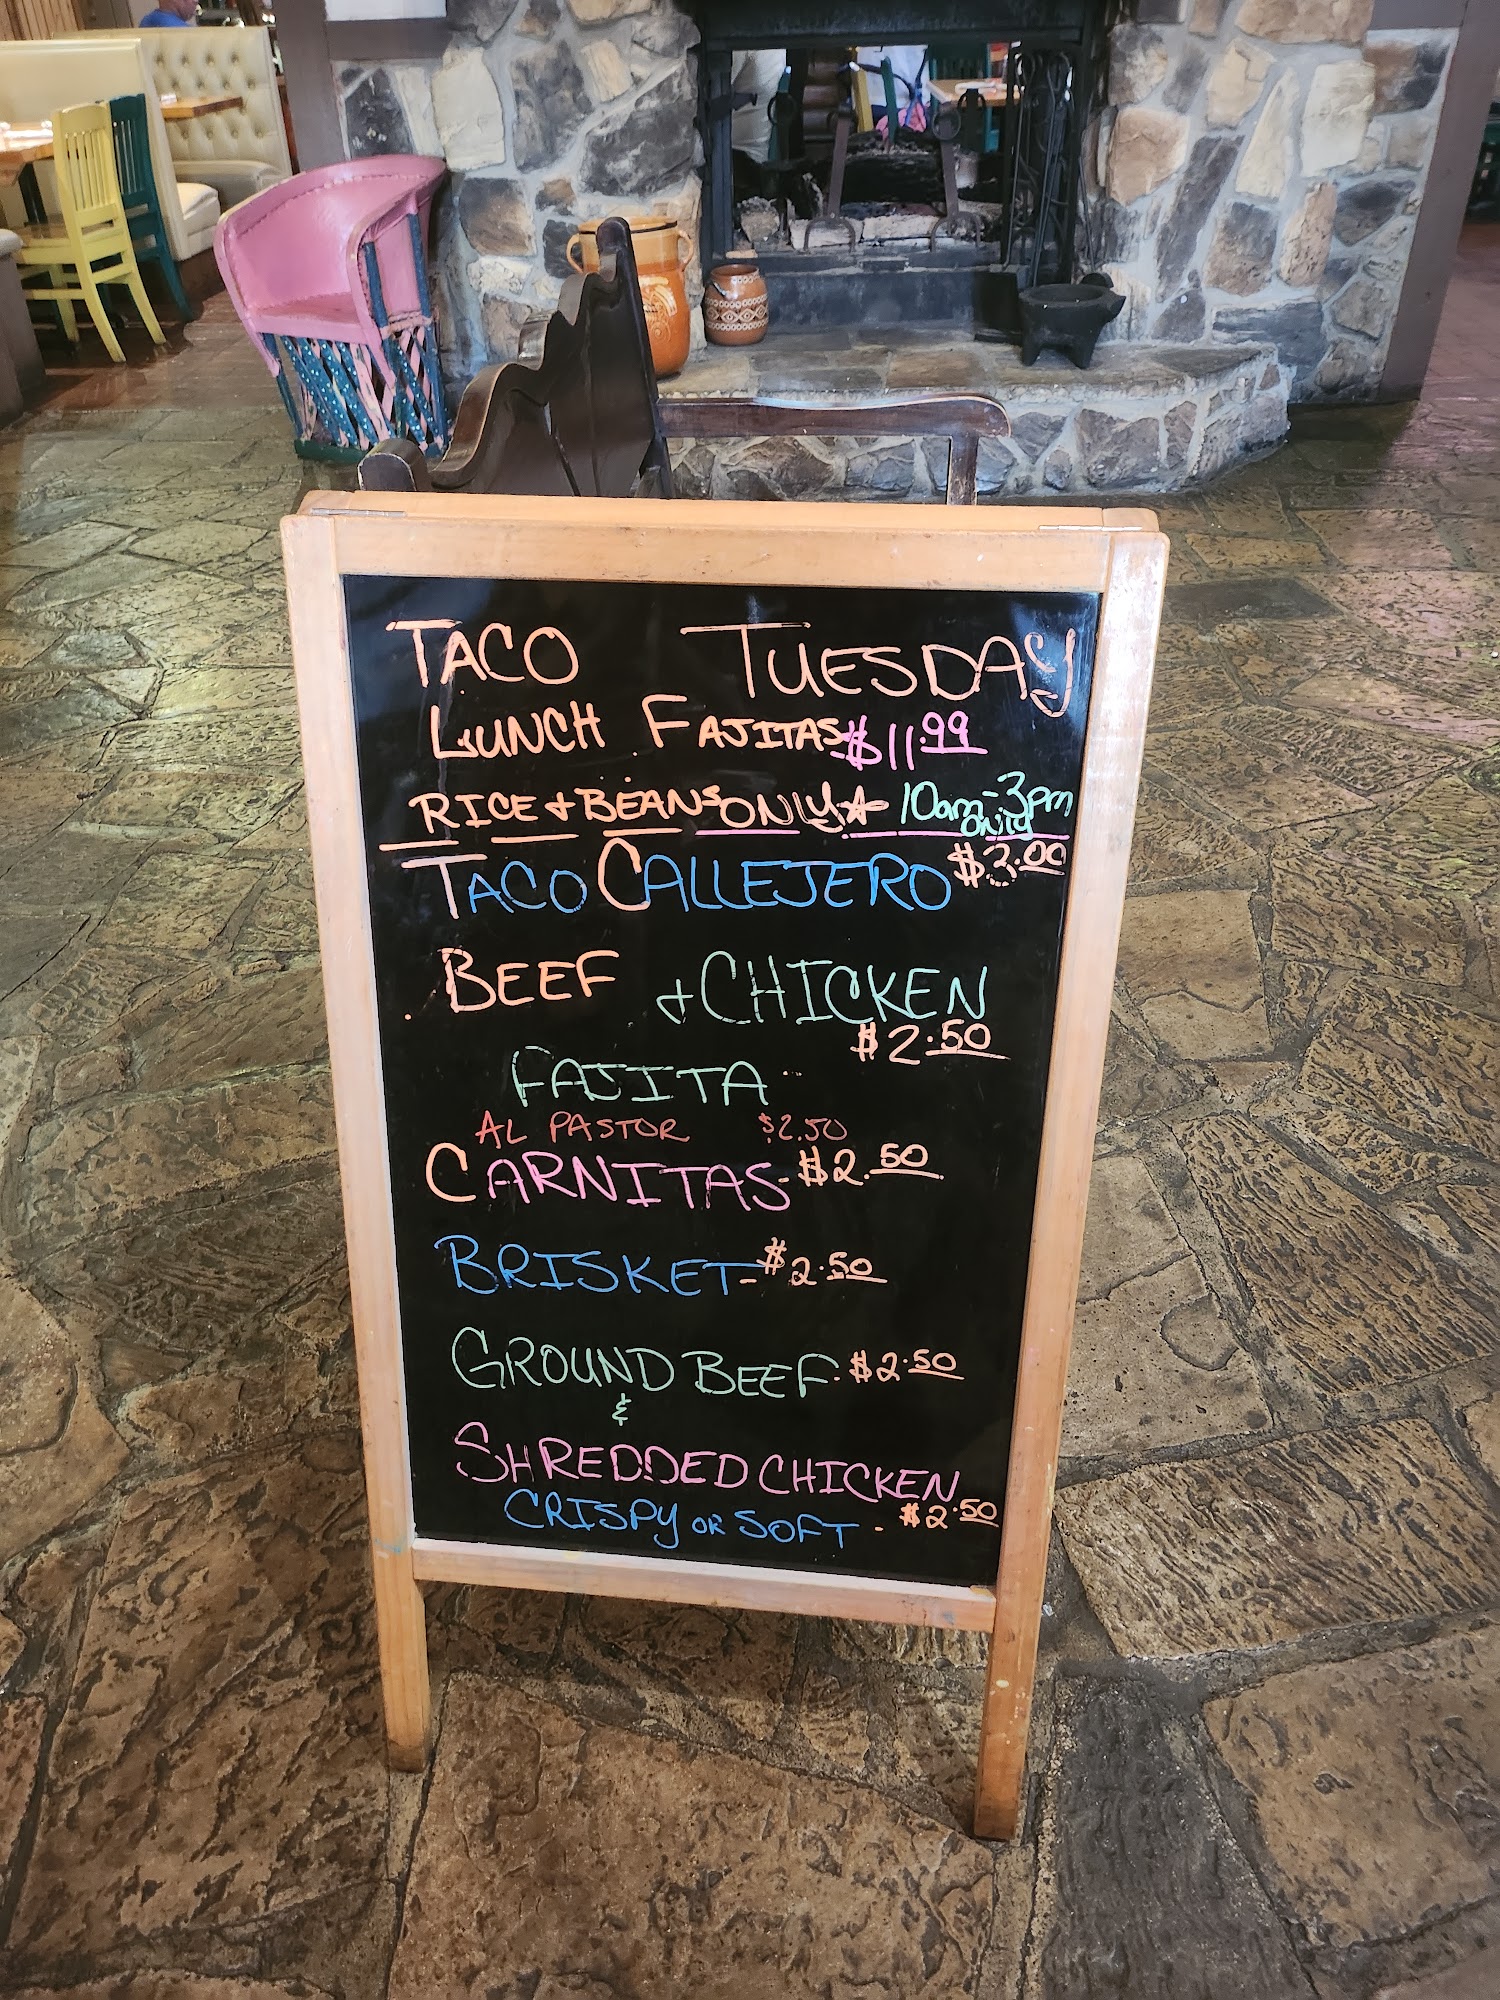 TACO TUESDAY
LUNCH FAJITAS $11.99
RICE & BEANS ONLY 10am-3pm
only
TACO CALLEJERO $3.00
BEEF & CHICKEN
$2.50
FAJITA
AL PASTOR $2.50
CARNITAS - $2.50
BRISKET - $2.50
GROUND BEEF. $2.50
&
SHREDDED CHICKEN
CRISPY OR SOFT - $2.50